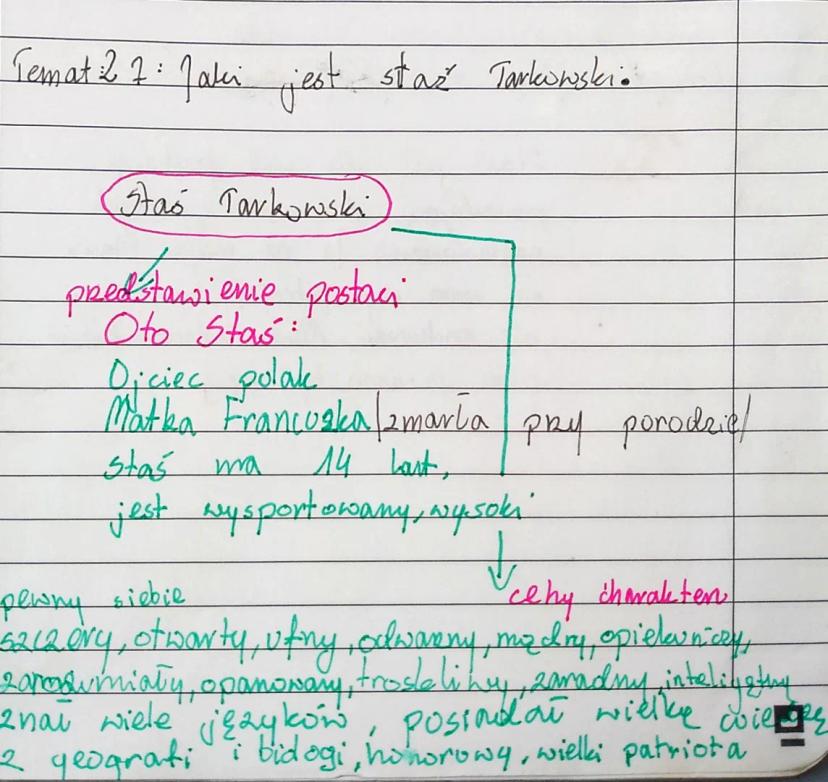 Temat 27: Jaki jest staż Tarkowski.
Staś Tarkowski
przedstawienie postaci
Oto Staś:
Ojciec polak
Matka Francuzka /zmarła przy porodzie/
staś ma 14 lat,
jest wysportowany, wysoki
cehy charakteru
pewny siebie
szczery, otwarty, ufny, odważny, mądry, opiekuńczy,
zarozumiały, opanowany, troskliwy, zaradny, inteligętny
znał wiele języków, posiadał wielkę wiedzę
z geografi i biologi, honorowy, wielki patriota